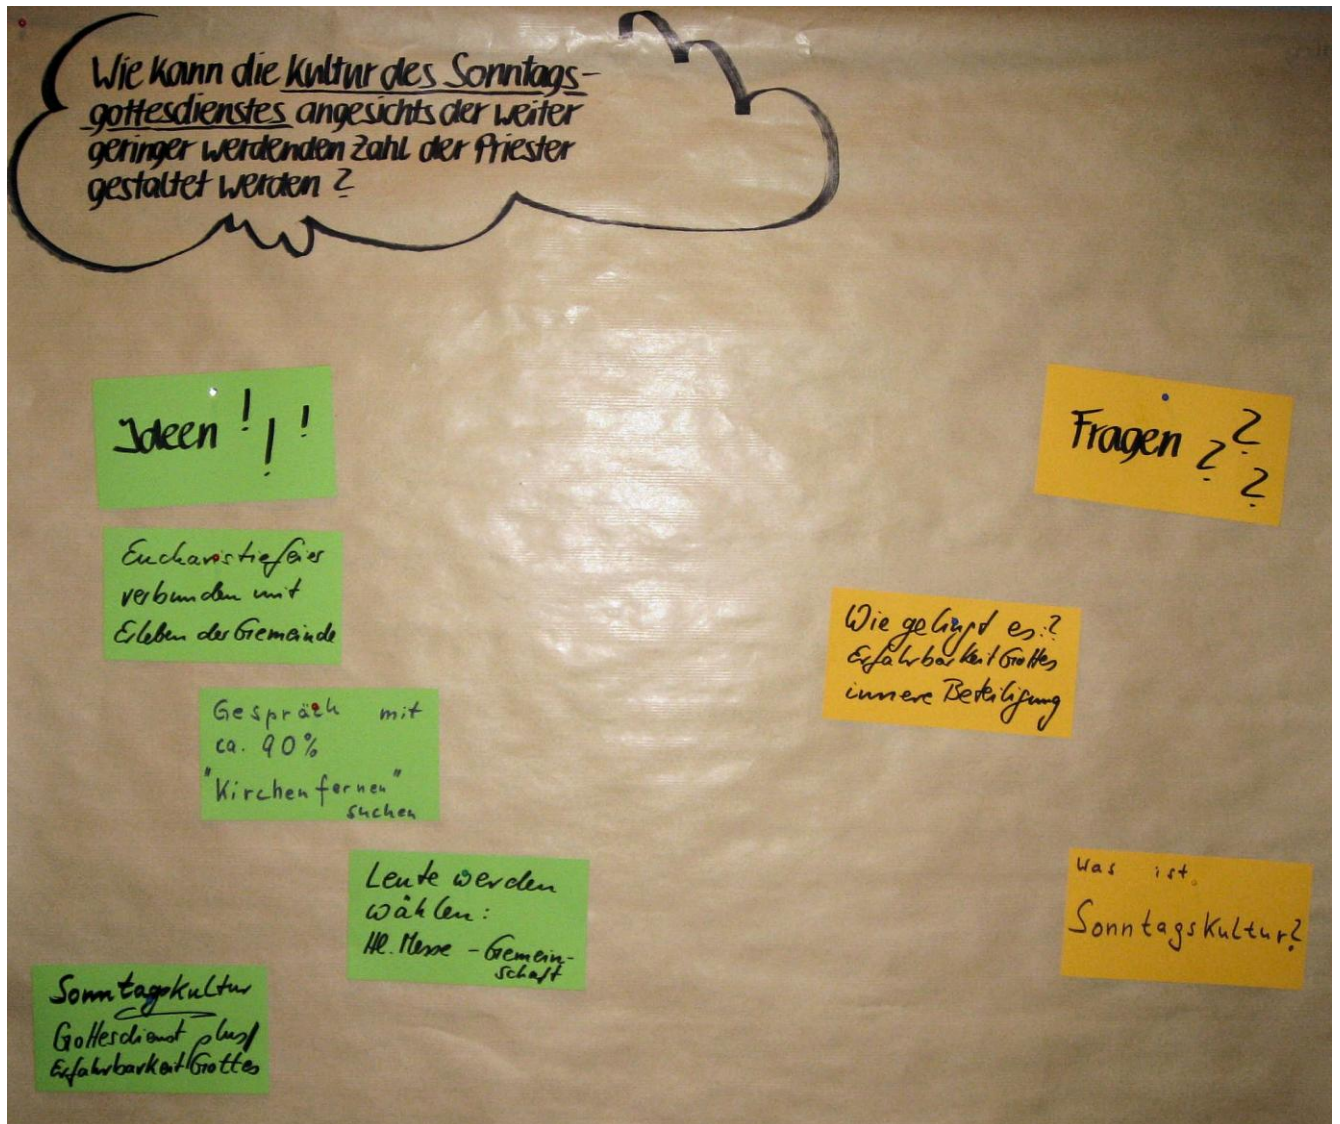 Wie kann die Kultur des Sonntags-
gottesdienstes angesichts der weiter
geringer werdenden Zahl der Priester
gestaltet werden ?
Ideen ! ! !
Eucharistiefeier
verbunden mit
Erleben der Gemeinde
Gespräch mit
ca. 90%
"Kirchenfernen"
suchen
Leute werden
wählen:
Hl. Messe - Gemein-
schaft
Sonntagskultur
Gottesdienst plus
Erfahrbarkeit Gottes
Fragen ? ? ?
Wie gelingt es:?
Erfahrbarkeit Gottes
innere Beteiligung
Was ist
Sonntagskultur?